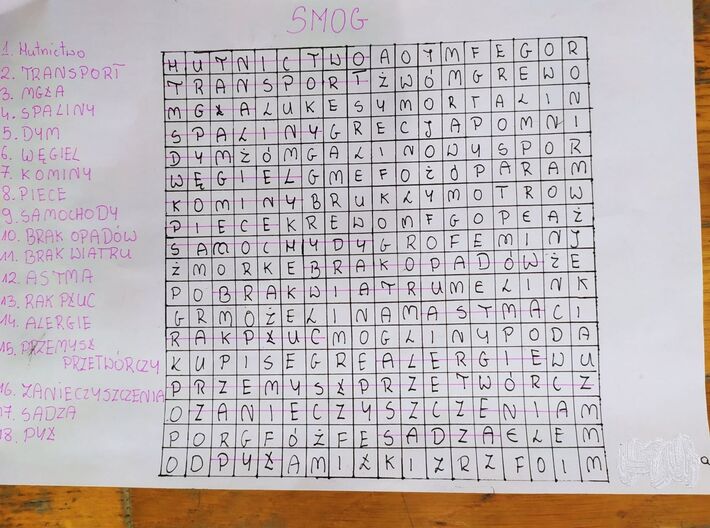 SMOG
1. Hutnictwo
2. TRANSPORT
3. MGŁA
4. SPALINY
5. DYM
6. WĘGIEL
7. KOMINY
8. PIECE
9. SAMOCHODY
10. BRAK OPADÓW
11. BRAK WIATRU
12. ASTMA
13. RAK PŁUC
14. ALERGIE
15. PRZEMYSŁ
PRZETWÓRCZY
16. ZANIECZYSZCZENIA
17. SADZA
18. PYŁ
H U T N I C T W O A O T M F E G O R
T R A N S P O R T Ż W Ó M G R E W O
M G Ł A L U K E S Y M O R T A L I N
S P A L I N Y G R E C J A P O M N I
D Y M Ż Ó M G A L I N O W Y S P O R
W Ę G I E L G M E F O Ż Ó P A R A M
K O M I N Y B R U K Ł Y M O T R O W
P I E C E K R E W O M F G O P E A Ż
S A M O C H Y D Y G R O F E M I N J
Ż M O R K E B R A K O P A D Ó W Ż E
P O B R A K W I A T R U M E L I N K
G R M O Ż E L I N A M A S T M A C I
R A K P Ł U C M O G L I N Y P O D A
K U P I S E G R E A L E R G I E W U
P R Z E M Y S Ł P R Z E T W Ó R C Z
O Z A N I E C Z Y S Z C Z E N I A M
P O R G F Ó Ż F E S A D Z A E L E M
O D P Y Ł A M I Ł K I Z R Z F O I M